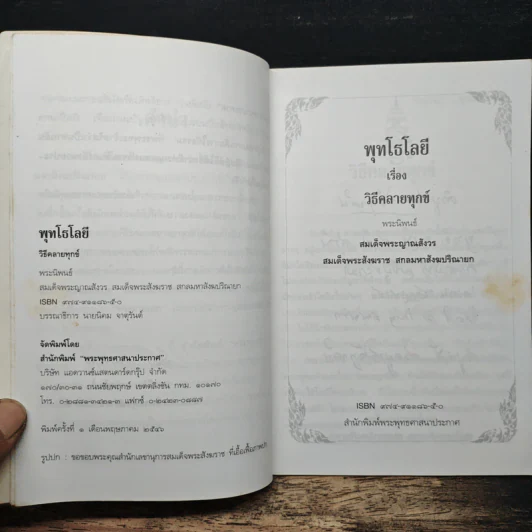 พุทโธโลยี
วิธีคลายทุกข์
พระนิพนธ์
สมเด็จพระญาณสังวร สมเด็จพระสังฆราช สกลมหาสังฆปริณายก
ISBN ๙๗๔-๙๑๑๘๖-๕-๐
บรรณาธิการ นายนิคม จาตุรันต์
จัดพิมพ์โดย
สำนักพิมพ์ "พระพุทธศาสนาประกาศ"
บริษัท แอดวานซ์แสตนดาร์ดกรุ๊ป จำกัด
๑๗๐/๓๐-๓๑ ถนนชัยพฤกษ์ เขตตลิ่งชัน กทม. ๑๐๑๗๐
โทร. ๐-๒๘๘๑-๓๔๒๑-๓ แฟกซ์ ๐-๒๔๒๓-๐๘๘๗
พิมพ์ครั้งที่ ๑ เดือนพฤษภาคม ๒๕๔๖
รูปปก : ขอขอบพระคุณสำนักเลขานุการสมเด็จพระสังฆราช ที่เอื้อเฟื้อภาพ
พุทโธโลยี
เรื่อง
วิธีคลายทุกข์
พระนิพนธ์
สมเด็จพระญาณสังวร
สมเด็จพระสังฆราช สกลมหาสังฆปริณายก
ISBN ๙๗๔-๙๑๑๘๖-๕-๐
สำนักพิมพ์พระพุทธศาสนาประกาศ